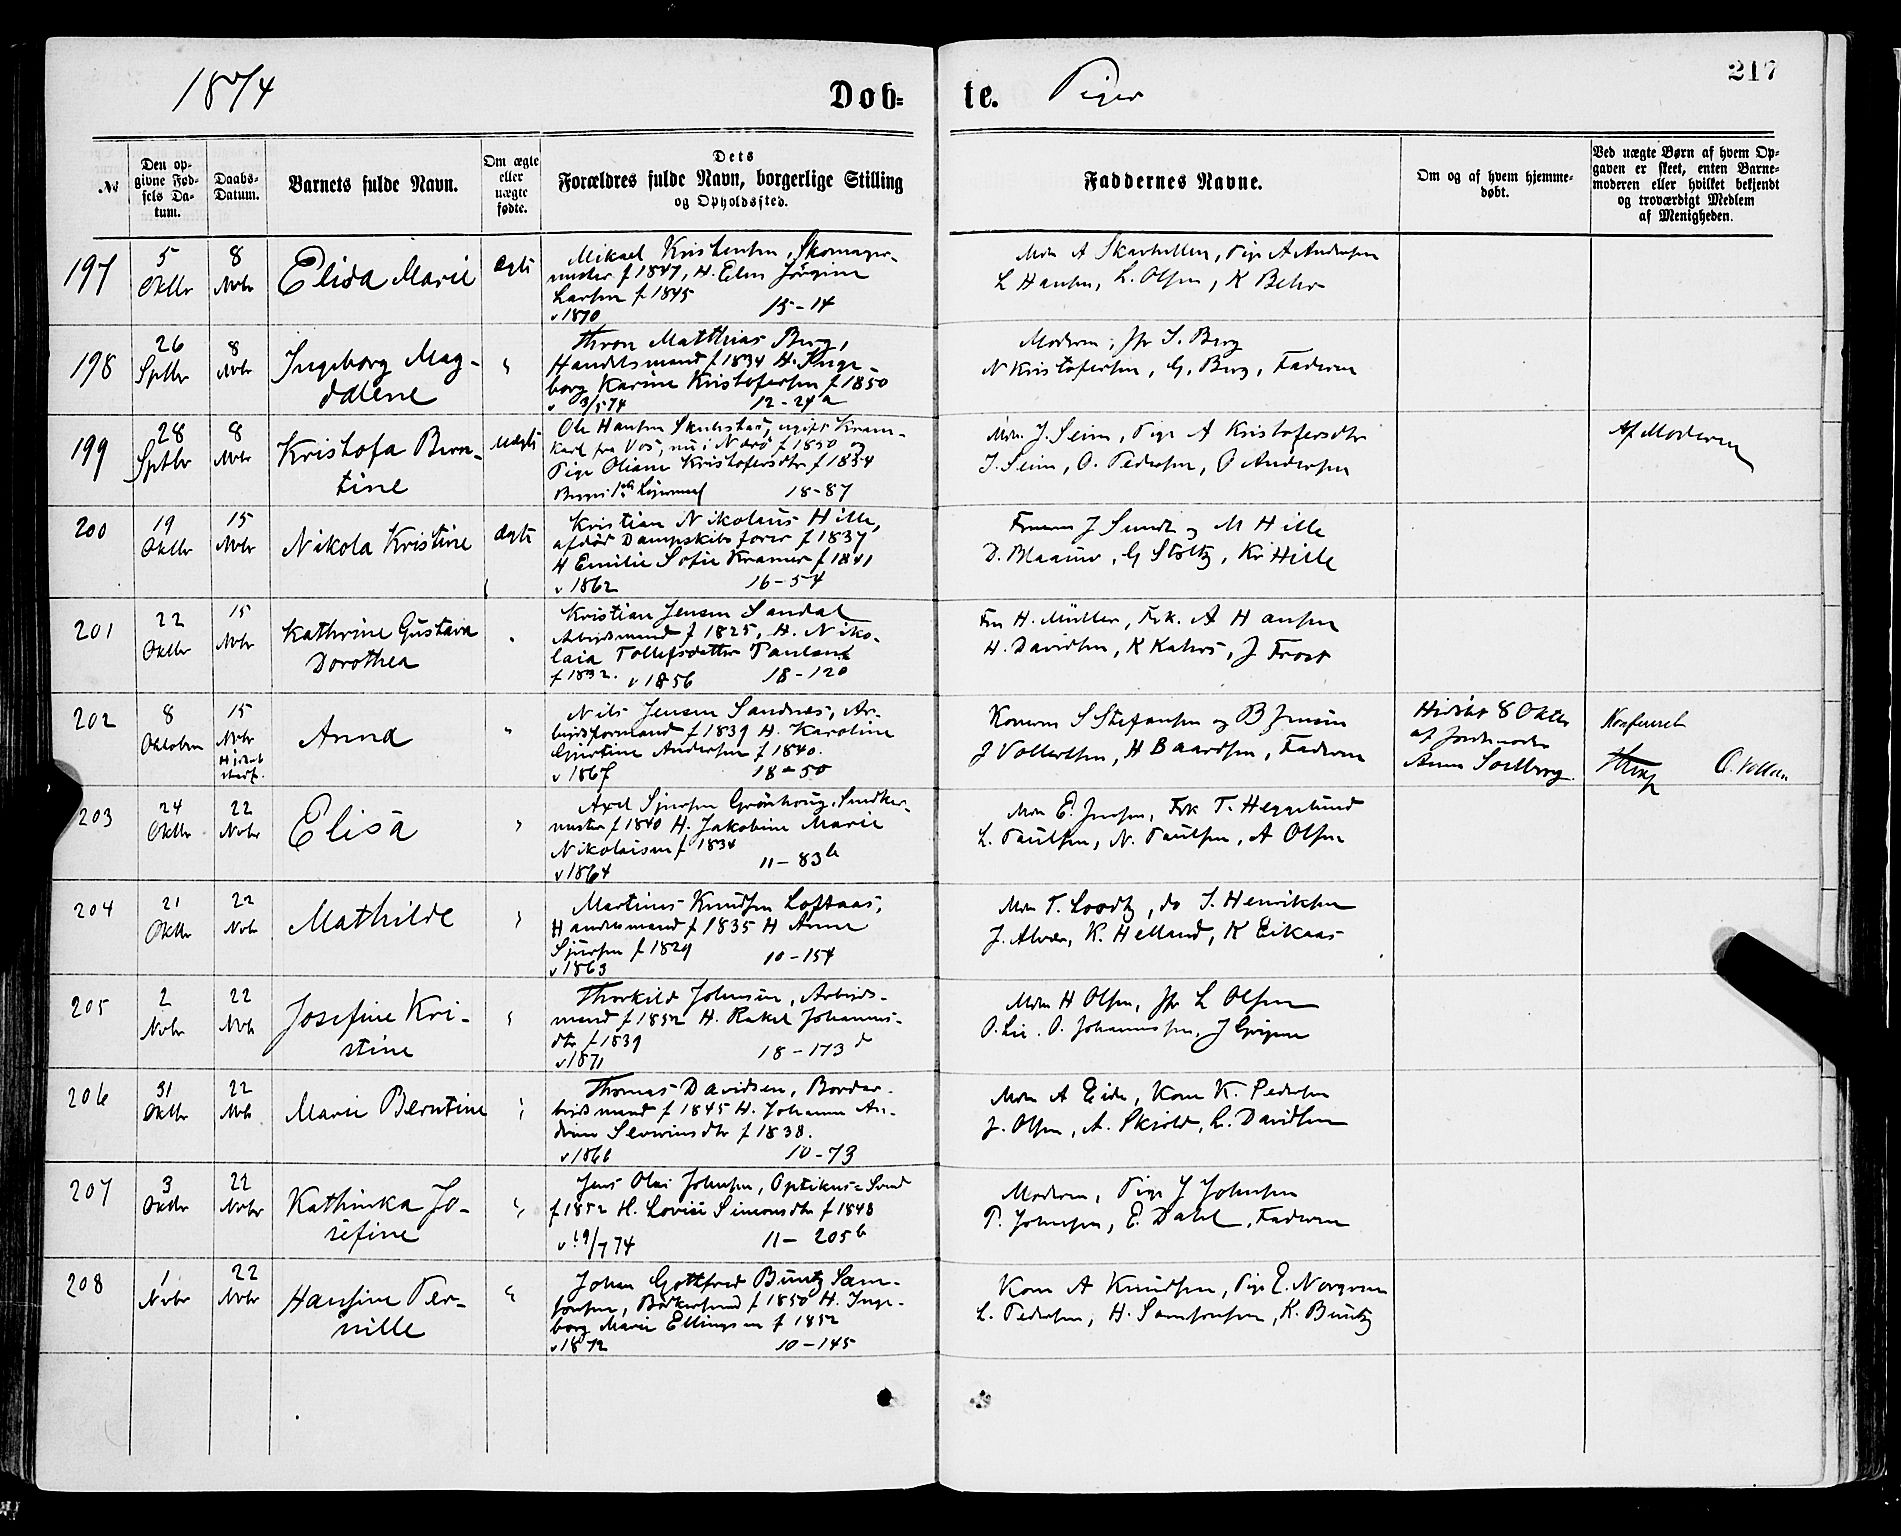 1874 Døb- te. Piger 217
No
Den opgivne Fødsels Datum.
Daabs-Datum.
Barnets fulde Navn.
Om ægte eller uægte fødte.
Dets Forældres fulde Navn, borgerlige Stilling og Opholdssted.
Faddernes Navne.
Om og af hvem hjemmedøbt.
Ved uægte Børn af hvem Opgaven er skeet, enten Barnemoderen eller hvilket bekjendt og troværdigt Medlem af Menigheden.
197
5 Oktbr
8 Novbr
Elisa Marie
Ægte
Mikael Kristensen, Skomager-
mester f 1847, H. Elen Jørgine
Larsen f 1845
v 1870 15-14
L Hansen, L. Olsen, K Behr
198
26 Sptbr
8 Novbr
Ingeborg Mag-
dalene
"
Thron Matthias Berg,
Handelsmand f 1834 H. Inge-
borg Karine Kristofersen f 1850
v 3/5 74 12-24a
Moderen, Jfr J. Berg
N Kristofersen, G. Berg, Faderen
199
28 Sptbr
8 Novbr
Kristofa Bern-
tine
Uægte
Ole Hansen
Karl fra Vos, nu i Nærø f 1850 og
Pige Oliane Kristofersdtr f 1854
Begges 1ste Leiermaal 18-87
Mdm J. Seim, Pige A Kristofersdtr
J. Seim, O. Pedersen, O Andersen
Af Moderen
200
19 Oktbr
15 Novbr
Nikola Kristine
Ægte
Kristian Nikolaus Hille,
afdød Dampskibsfører f 1837
H Emilie Sofie Kramer f 1841
v 1862 16-54
Fruerne J Sundt og M Hille
D. Blaauw, G Stoltz, Kr Hille
201
22 Oktbr
15 Novbr
Kathrine Gustava
Dorothea
"
Kristian Jensen Sandal
Arbeidsmand f 1825, H. Niko-
laia Tollefsdatter Paulsen
f 1832. v 1856 18-120
Fru H. Müller, Frk. A Hansen
H. Davidsen, K Kahrs, J Frost
202
8 Oktober
15 Novbr
Anna
"
Nils Jensen Sandnes, Ar-
beidsformand f 1839 H. Karoline
Gjertine Andersen f 1840.
v 1867 18-50
Konerne S Stefansen og B Jensen
J Vollertsen, H Baardsen, Faderen
Hjdøbt 8 Oktbr
af Jordemoder
Anna Solberg
Konfereret
203
24 Oktbr
22 Novbr
Elisa
"
Axel Sjursen Grønhoug, Snedker-
mester f 1840 H. Jakobine Marie
Nikolaisen f 1834
v 1864 11-83b
Mdm E. Jensen, Frk T. Heggelund
L. Paulsen, N. Paulsen, A Olsen
204
21 Oktbr
22 Nvbr
Mathilde
"
Martinus Knudsen Loftaas,
Handelsmand f 1835 H Anna
Sjursen f 1829
v 1863 10-154
Mdm T. Loodtz, do J. Henriksen
J. Alver, K. Helland, K Eikaas
205
2 Nvbr
22 Nvbr
Josefine Kri-
stine
"
Thorkild Johnsen, Arbeids-
mand f 1852 H. Rakel Johannes-
dtr f 1839
v 1871 18-173d
Mdm H Olsen, Jfr L Olsen
O. Lie. O. Johannessen,
206
31 Oktbr
22 Nvbr
Marie Berntine
"
Thomas Davidsen, Bordar-
beidsmand f 1845 H. Johanne An-
drine Severinsdtr f 1838.
v 1866 10-73
Mdm A Eide, Kone K. Pedersen
J. Olsen, A. Skjold, L. Davidsen
207
3 Oktbr
22 Novbr
Kathinka Jo-
sefine
"
Jens Olai Johnsen, Optikus-Svend
f 1852 H. Lovise Simonsdtr f 1848
v 19/7 74 11-205b
Moderen, Pige J Johnsen
P. Johnsen, E. Dahl, Faderen
208
1 Nvbr
22 Nvbr
Hansine Per-
nille
"
Johan Gottfred Buntz Sam-
sonsen, Bødkersvend f 1850 H. Inge-
borg Marie Ellingsen f 1852
v 1872 10-145
Kone A Knudsen, Pige E. Norgreen
L. Pedersen, H. Samsonsen, K. Buntz